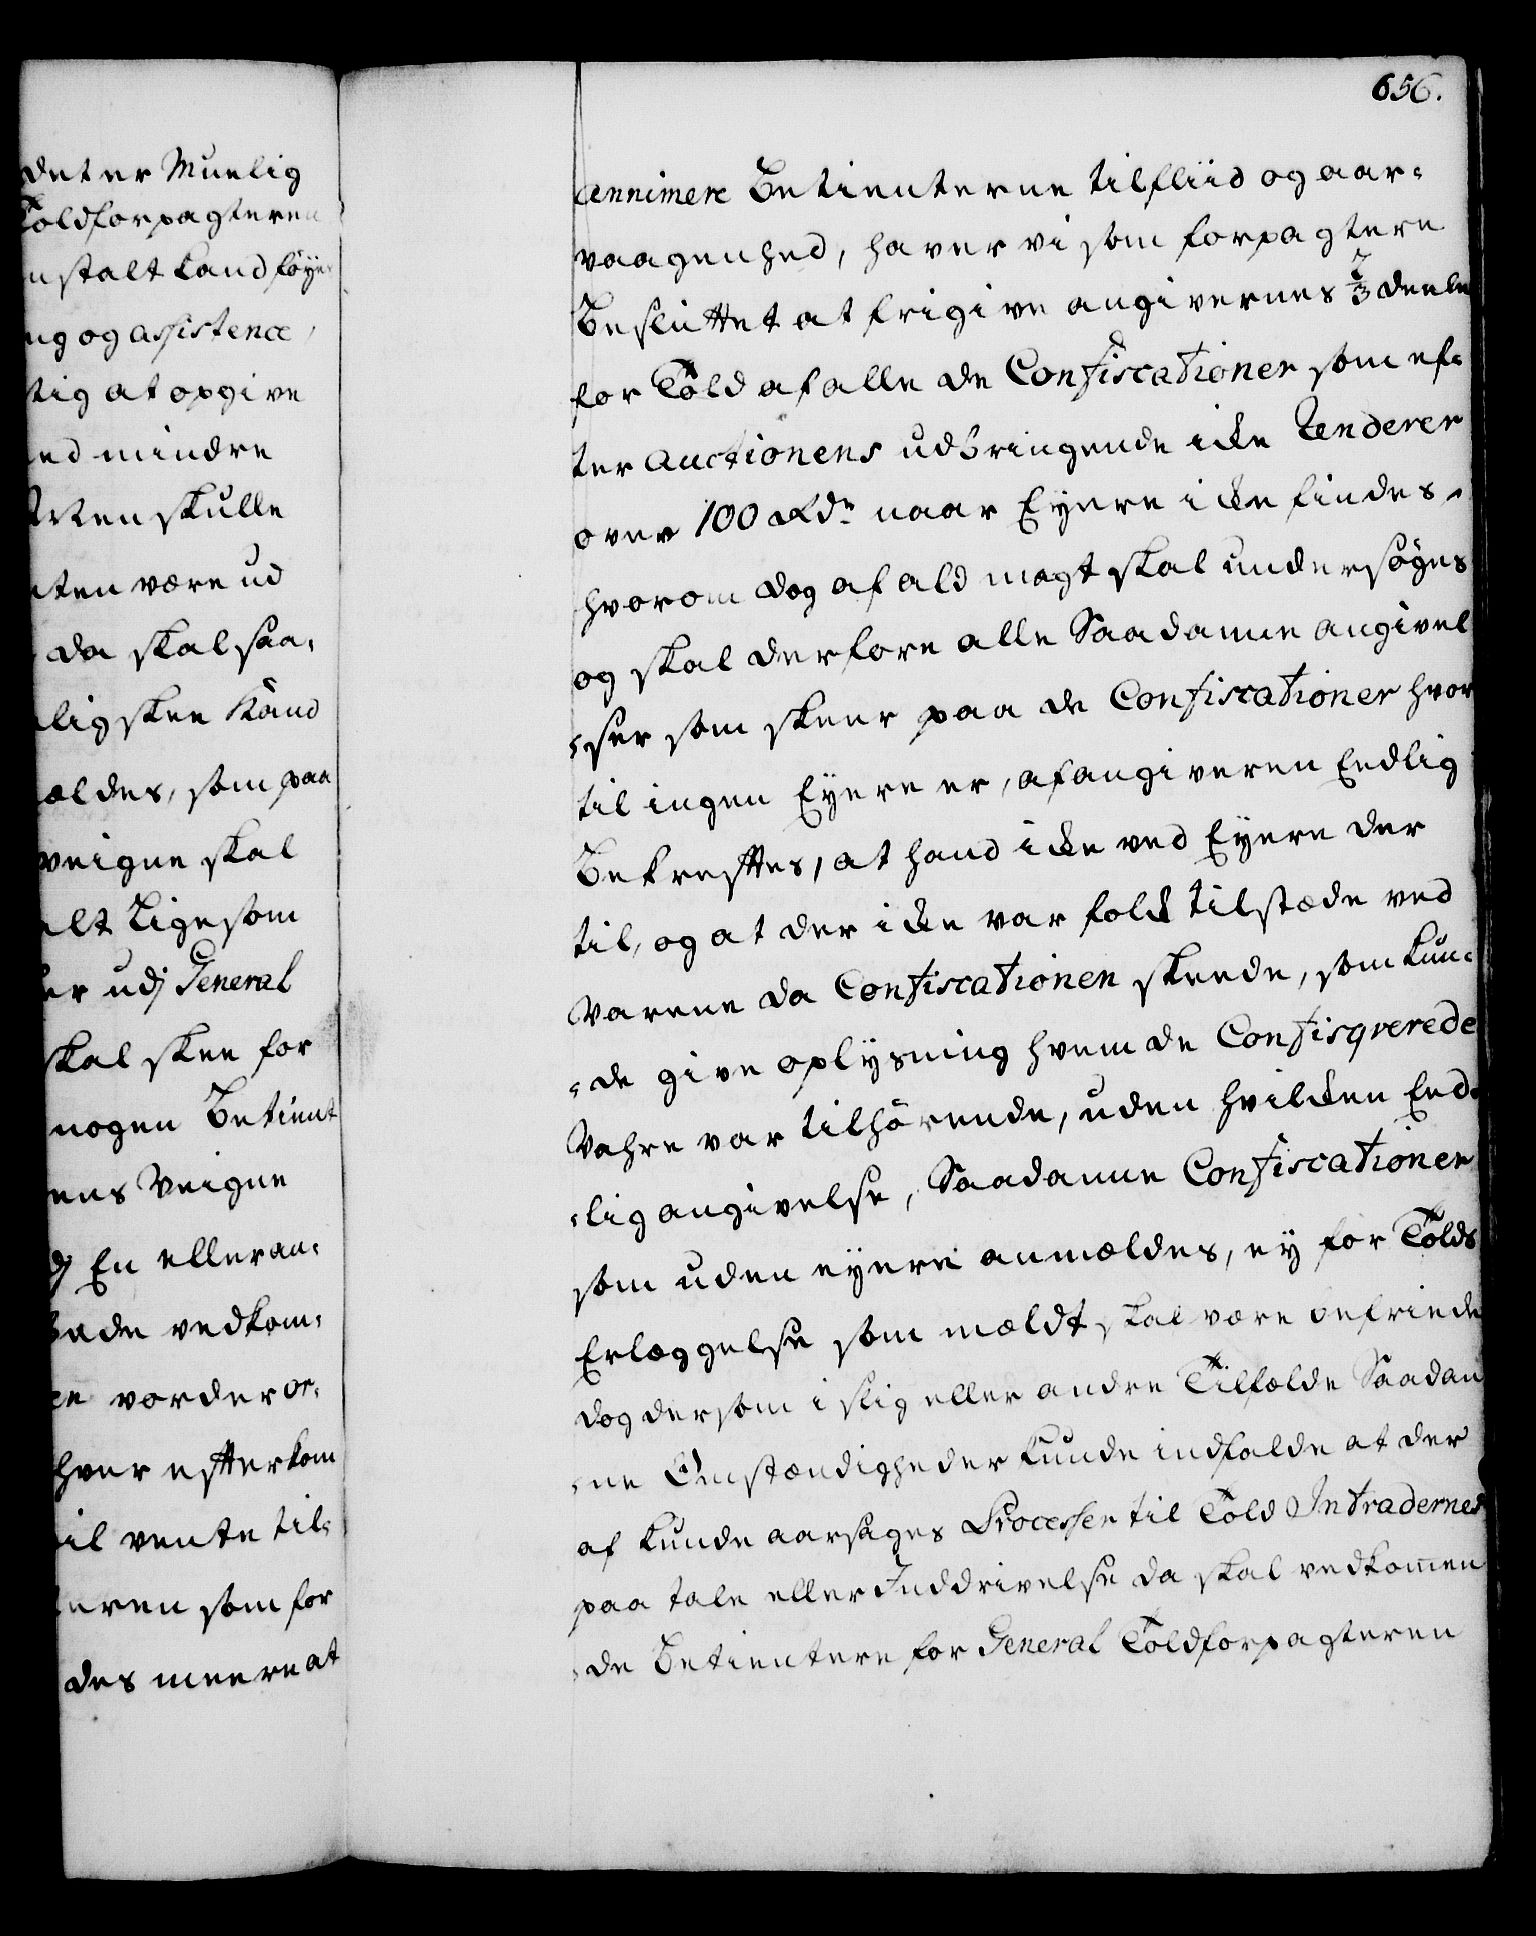 det er Muelig
Toldforpagteren
nstalt kand føye
ng og assistence,
tig at opgive
ed mindre
skulle
ten være ud
da skal saa,
lig skee Kand
ældes, som paa
veigne skal
alt Ligesom
er udj General
skal skee for
nogen Betient
ens Veigne
En eller an,
vedkom,
vorder or,
hver efterkom
il vente til,
eren som for
des meere at
656.
annimere Betienterne til fliid og aar,
vaagenhed, haver vi som forpagtere
Besluttet at frigive angivernes 1/3 deele
for Told af alle de Confiscationer som ef,
ter Auctionens udbringende icke Renderer
over 100 Rdr naar Eyere icke findes,
hvorom dog af ald magt skal undersøges
og skal derfore alle Saadanne angivel
,ser som skeer paa de Confiscationer hvor
til ingen Eyere er, af angiveren Eedlig
Bekreftes, at hand icke ved Eyere der
til, og at der icke var folck tilstæde ved
Varene da Confiscationen skeede, som kun,
,de give oplysning hvem de Confisqverede
Vahre var tilhørende, uden hvilcken Eed,
,lig angivelse, Saadanne Confiscationer
som uden eyere anmældes, ey for Tolds
Erlæggelse som mældt skal være befriede
dog dersom i slig eller andre Tilfælde Saadan
,ne Omstændigheder kunde indfalde at der
af kunde aarsages Processer til Told Intradernes
paatale eller Inddrivelse da skal vedkommen
,de Betientere for General Toldforpagteren